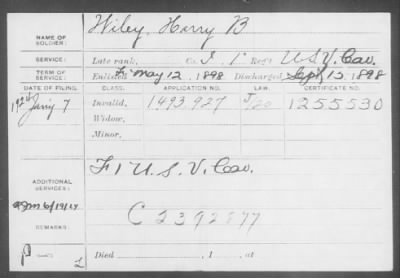 NAME OF SOLDIER: Wiley, Harry B
SERVICE: Late rank, Co. I, 1 Reg't U.S.V. Cav.
TERM OF SERVICE: Enlisted May 12, 1898, Discharged Sept 15, 1898
DATE OF FILING. CLASS. APPLICATION NO. LAW. CERTIFICATE NO.
7 Invalid, 1493,927 1255530
Widow,
Minor,
ADDITIONAL SERVICES: F 1 U.S.V. Cav.
6/19/24
C 2392877
REMARKS:
Died , 1 , at